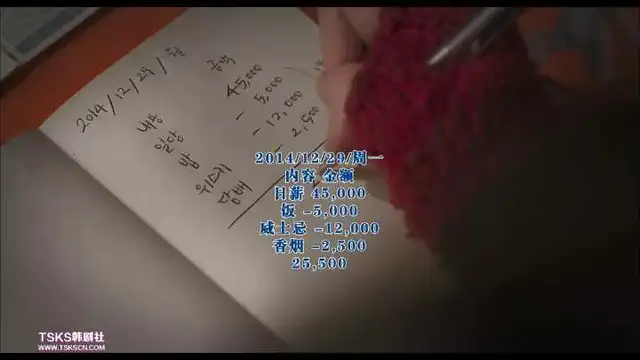 2014/12/29/월
내용 금액
일당 45,000
밥 - 5,000
위스키 - 12,000
담배 - 2,500
2014/12/29/周一
内容 金额
日薪 45,000
饭 -5,000
威士忌 -12,000
香烟 -2,500
25,500
TSKS韩剧社
WWW.TSKSCN.COM